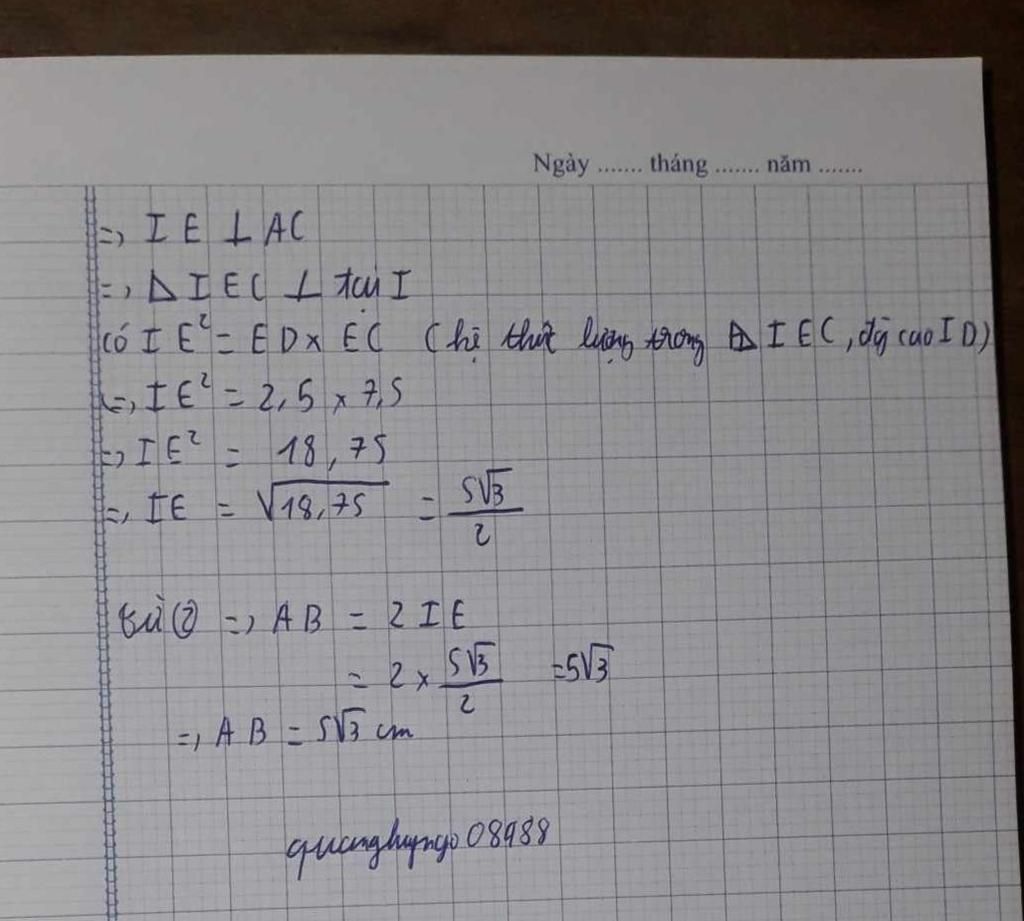 Ngày ....... tháng ....... năm .......
=> IE ⊥ AC
=> Δ IEC ⊥ tại I
Có IE² = ED × EC (hệ thức lượng trong Δ IEC, đg cao ID)
=> IE² = 2,5 × 7,5
=> IE² = 18,75
=> IE = √18,75 = 5√3/2
từ (2) => AB = 2IE
= 2 × 5√3/2 = 5√3
=> AB = 5√3 cm
quanghuyngo08988